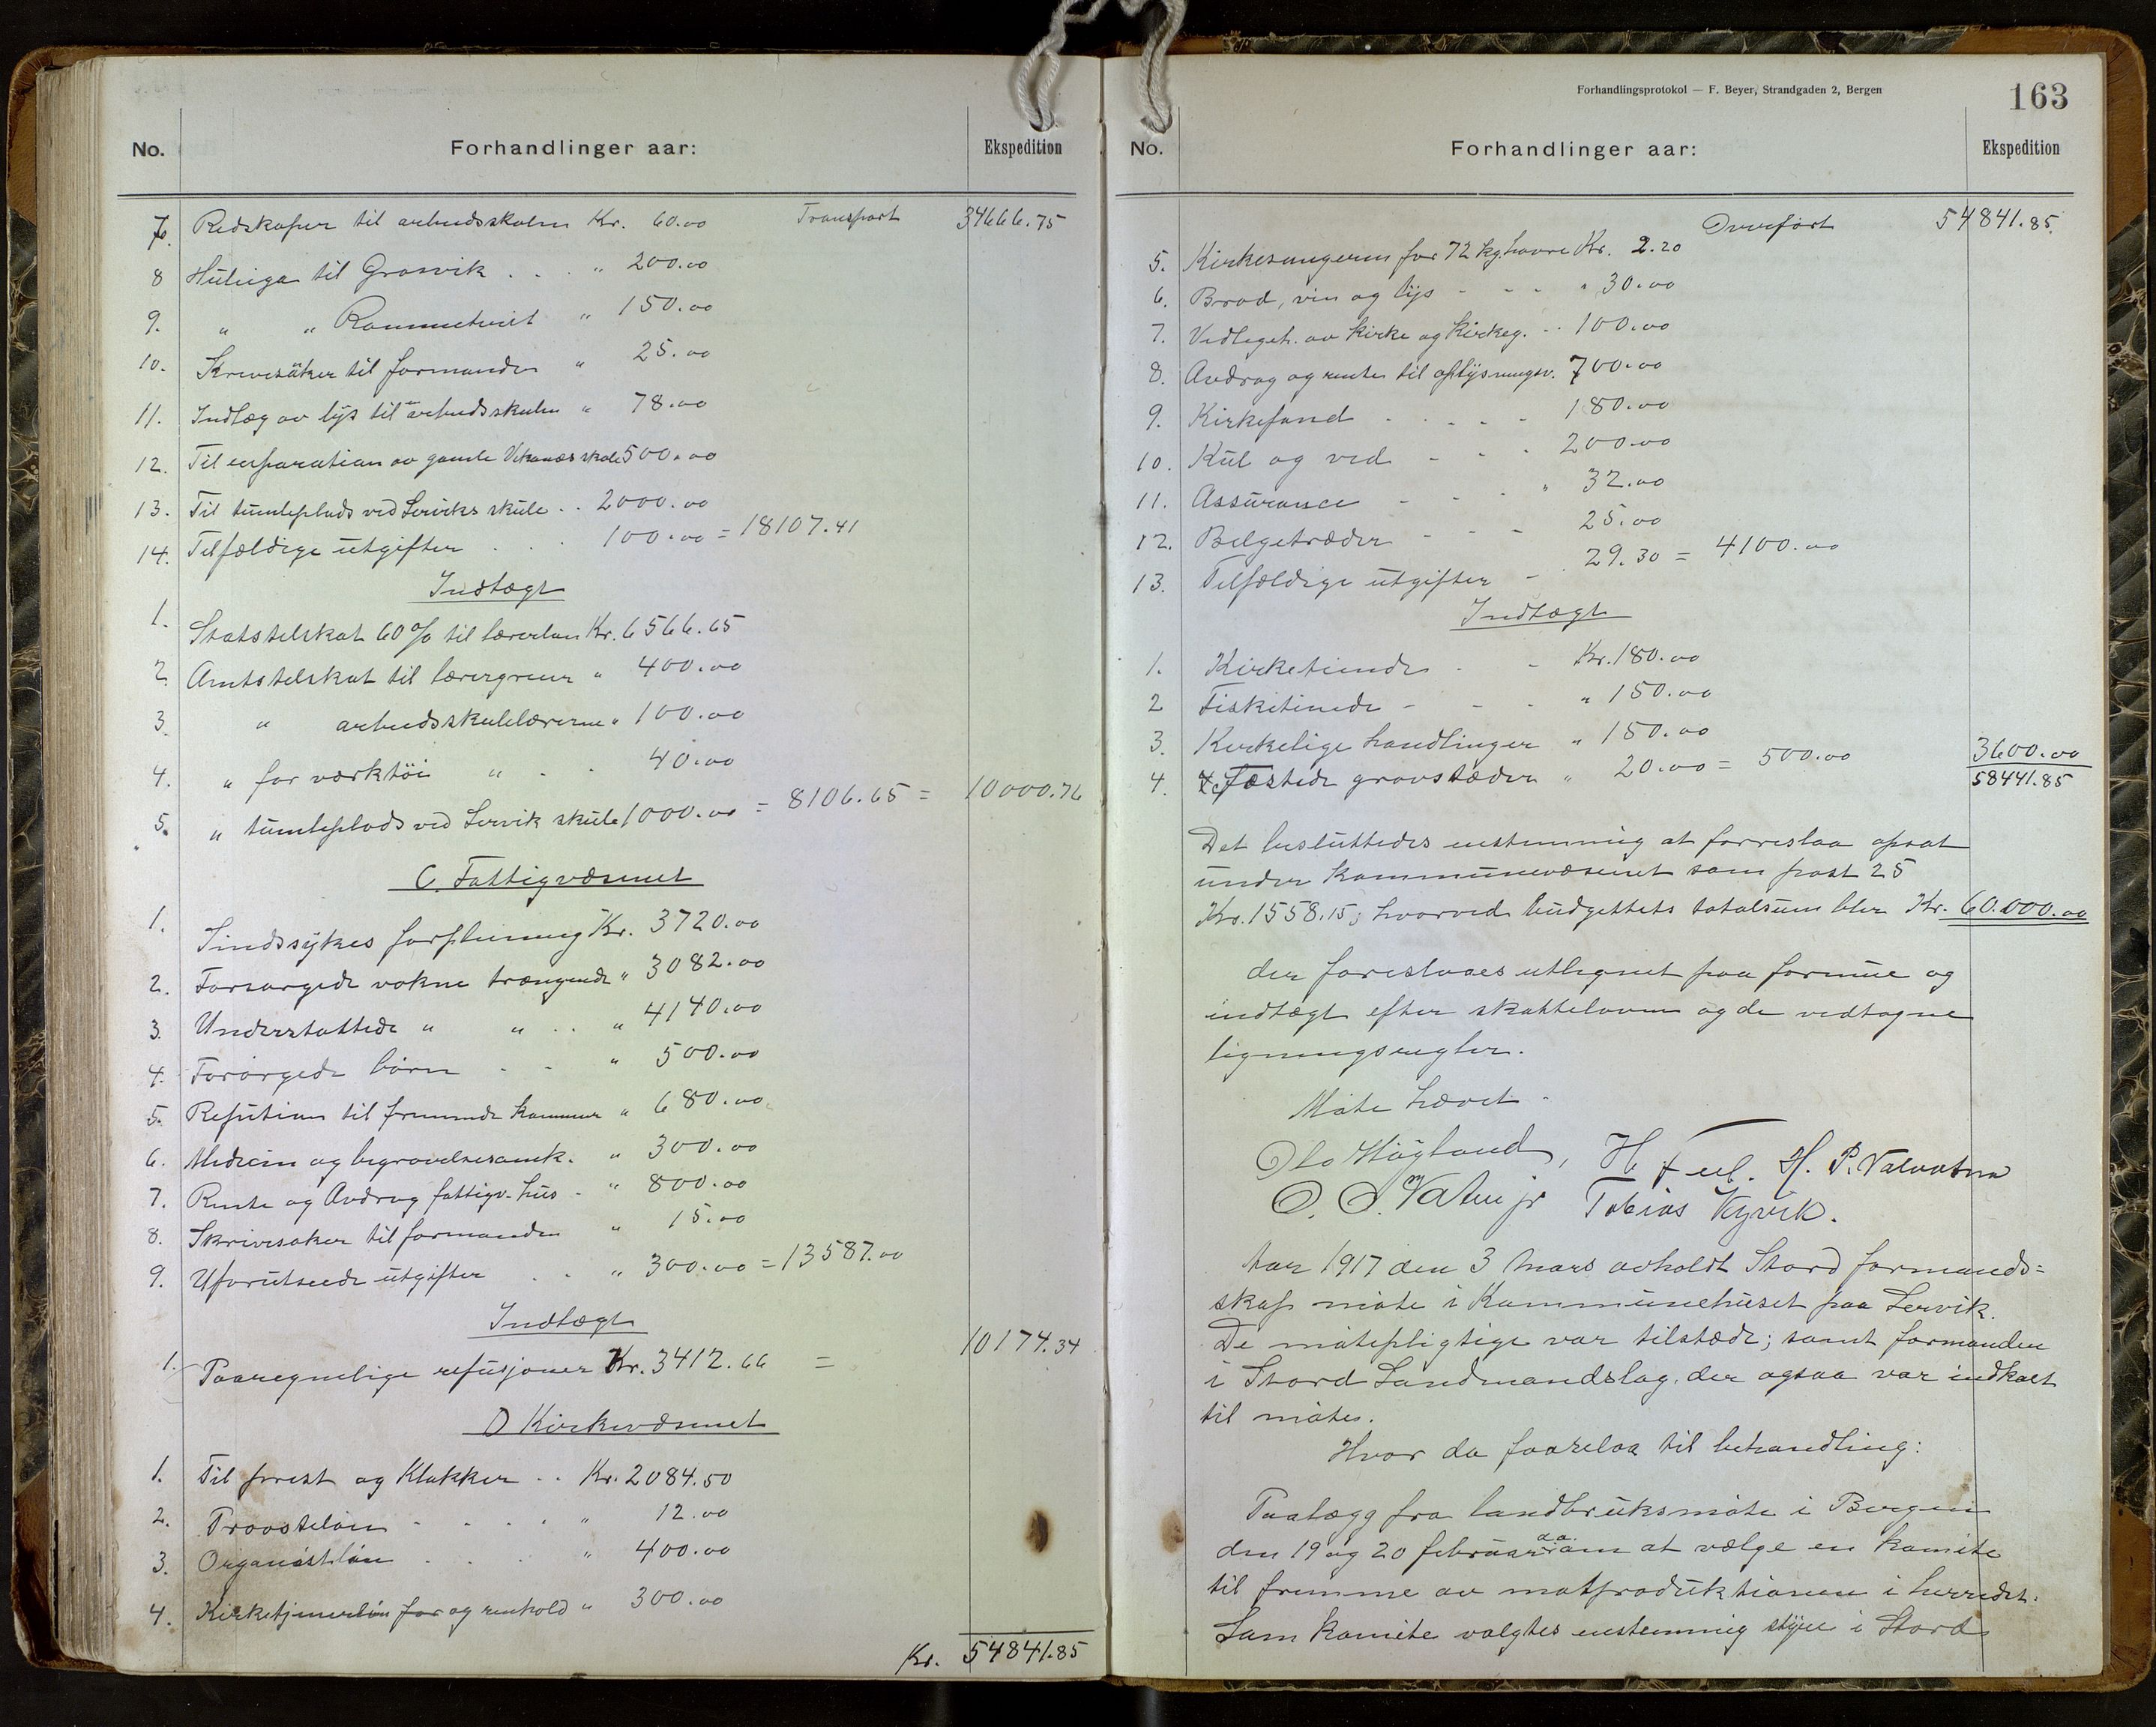 No. Forhandlinger aar: Ekspedition
7. Redskaper til arbeidsskolen Kr. 60.00 Transport 34666.75
8 Huleiga til Grosvik . . . " 200.00
9. " " Rommetveit " 150.00
10. Skrivesaker til formanden " 25.00
11. Indlæg av lys til arbeidsskulen " 78.00
12. Til reparation av gamle Vikanæs skole 500.00
13. Til tumleplads ved Lerviks skule . . 2000.00
14. Tilfældige utgifter . . . 100.00 = 18107.41
Indtægt
1. Statstilskot 60% til lærerløn Kr. 6566.65
2. Amtstilskot til lærergreier " 400.00
3. " arbeidsskulelærerne " 100.00
4. " for værktöi " . . 40.00
5. " tumleplads ved Lervik skule 1000.00 = 8106.65 = 10000.76
C. Fattigvæsenet
1. Sindssykes forpleining Kr. 3720.00
2. Forsørgede voksne trængende " 3082.00
3. Understøttede " " . . " 4140.00
4. Forsørgede börn - - " 500.00
5. Refution til fremmede kommuner " 680.00
6. Medicin og begravelsesomk. " 300.00
7. Rente og Avdrag fattigv. hus - " 800.00
8. Skrivesaker til formanden " 15.00
9. Uforutseede utgifter . . " 300.00 = 13587.00
Indtægt
1. Paaregnelige refusjoner Kr. 3412.66 = 10174.34
D Kirkevæsenet
1. Til prest og Klokker . . Kr. 2084.50
2. Provsteløn - - - - " 12.00
3. Organistløn . . . " 400.00
4. Kirketjenerløn for og renhold " 300.00
Kr. 54841.85
Forhandlingsprotokol — F. Beyer, Strandgaden 2, Bergen
163
No. Forhandlinger aar: Ekspedition
Overført 54841.85
5. Kirkesangeren for 72 kg. havre Kr. 2.20
6. Brød, vin og lys - - - " 30.00
7. Vedligeh. av kirke og kirkeg. - - 100.00
8. Avdrag og renter til oplysningsv. 700.00
9. Kirkefond - . . . - 180.00
10. Kul og ved - - - 200.00
11. Assurance - - - " 32.00
12. Belgetræder - - - 25.00
13. Tilfældige utgifter - . 29.30 = 4100.00
Indtægt
1. Kirketiende - - Kr. 180.00
2 Fisketiende - - - " 150.00
3. Kirkelige handlinger " 150.00 3600.00
4. Fæstede gravstæder " 20.00 = 500.00 58441.85
Det besluttedes enstemmig at forreslaa opsat
under kommunevæsenet som post 25
Kr. 1558.15; hvorved budgettets totalsum blir Kr. 60.000.00
der foreslaaes utlignet paa formue og
indtægt efter skatteloven og de vedtagne
ligningsregler.
Møte hævet -
Ole Høyland, H. P. Valvatna
O. O. Vatne jr Tobias Kyvik.
Aar 1917 den 3 Mars avholdt Stord formands=
skap møte i Kommunehuset paa Lervik.
De møtepligtige var tilstæde; samt formanden
i Stord Landmandslag, der ogsaa var indkalt
til møtes.
Hvor da forelaa til behandling:
Paalægg fra landbruksmøte i Bergen
den 19 og 20 februar d.a. om at vælge en komite
til fremme av matproduktionen i herredet.
Som komite valgtes enstemmig styre i Stord